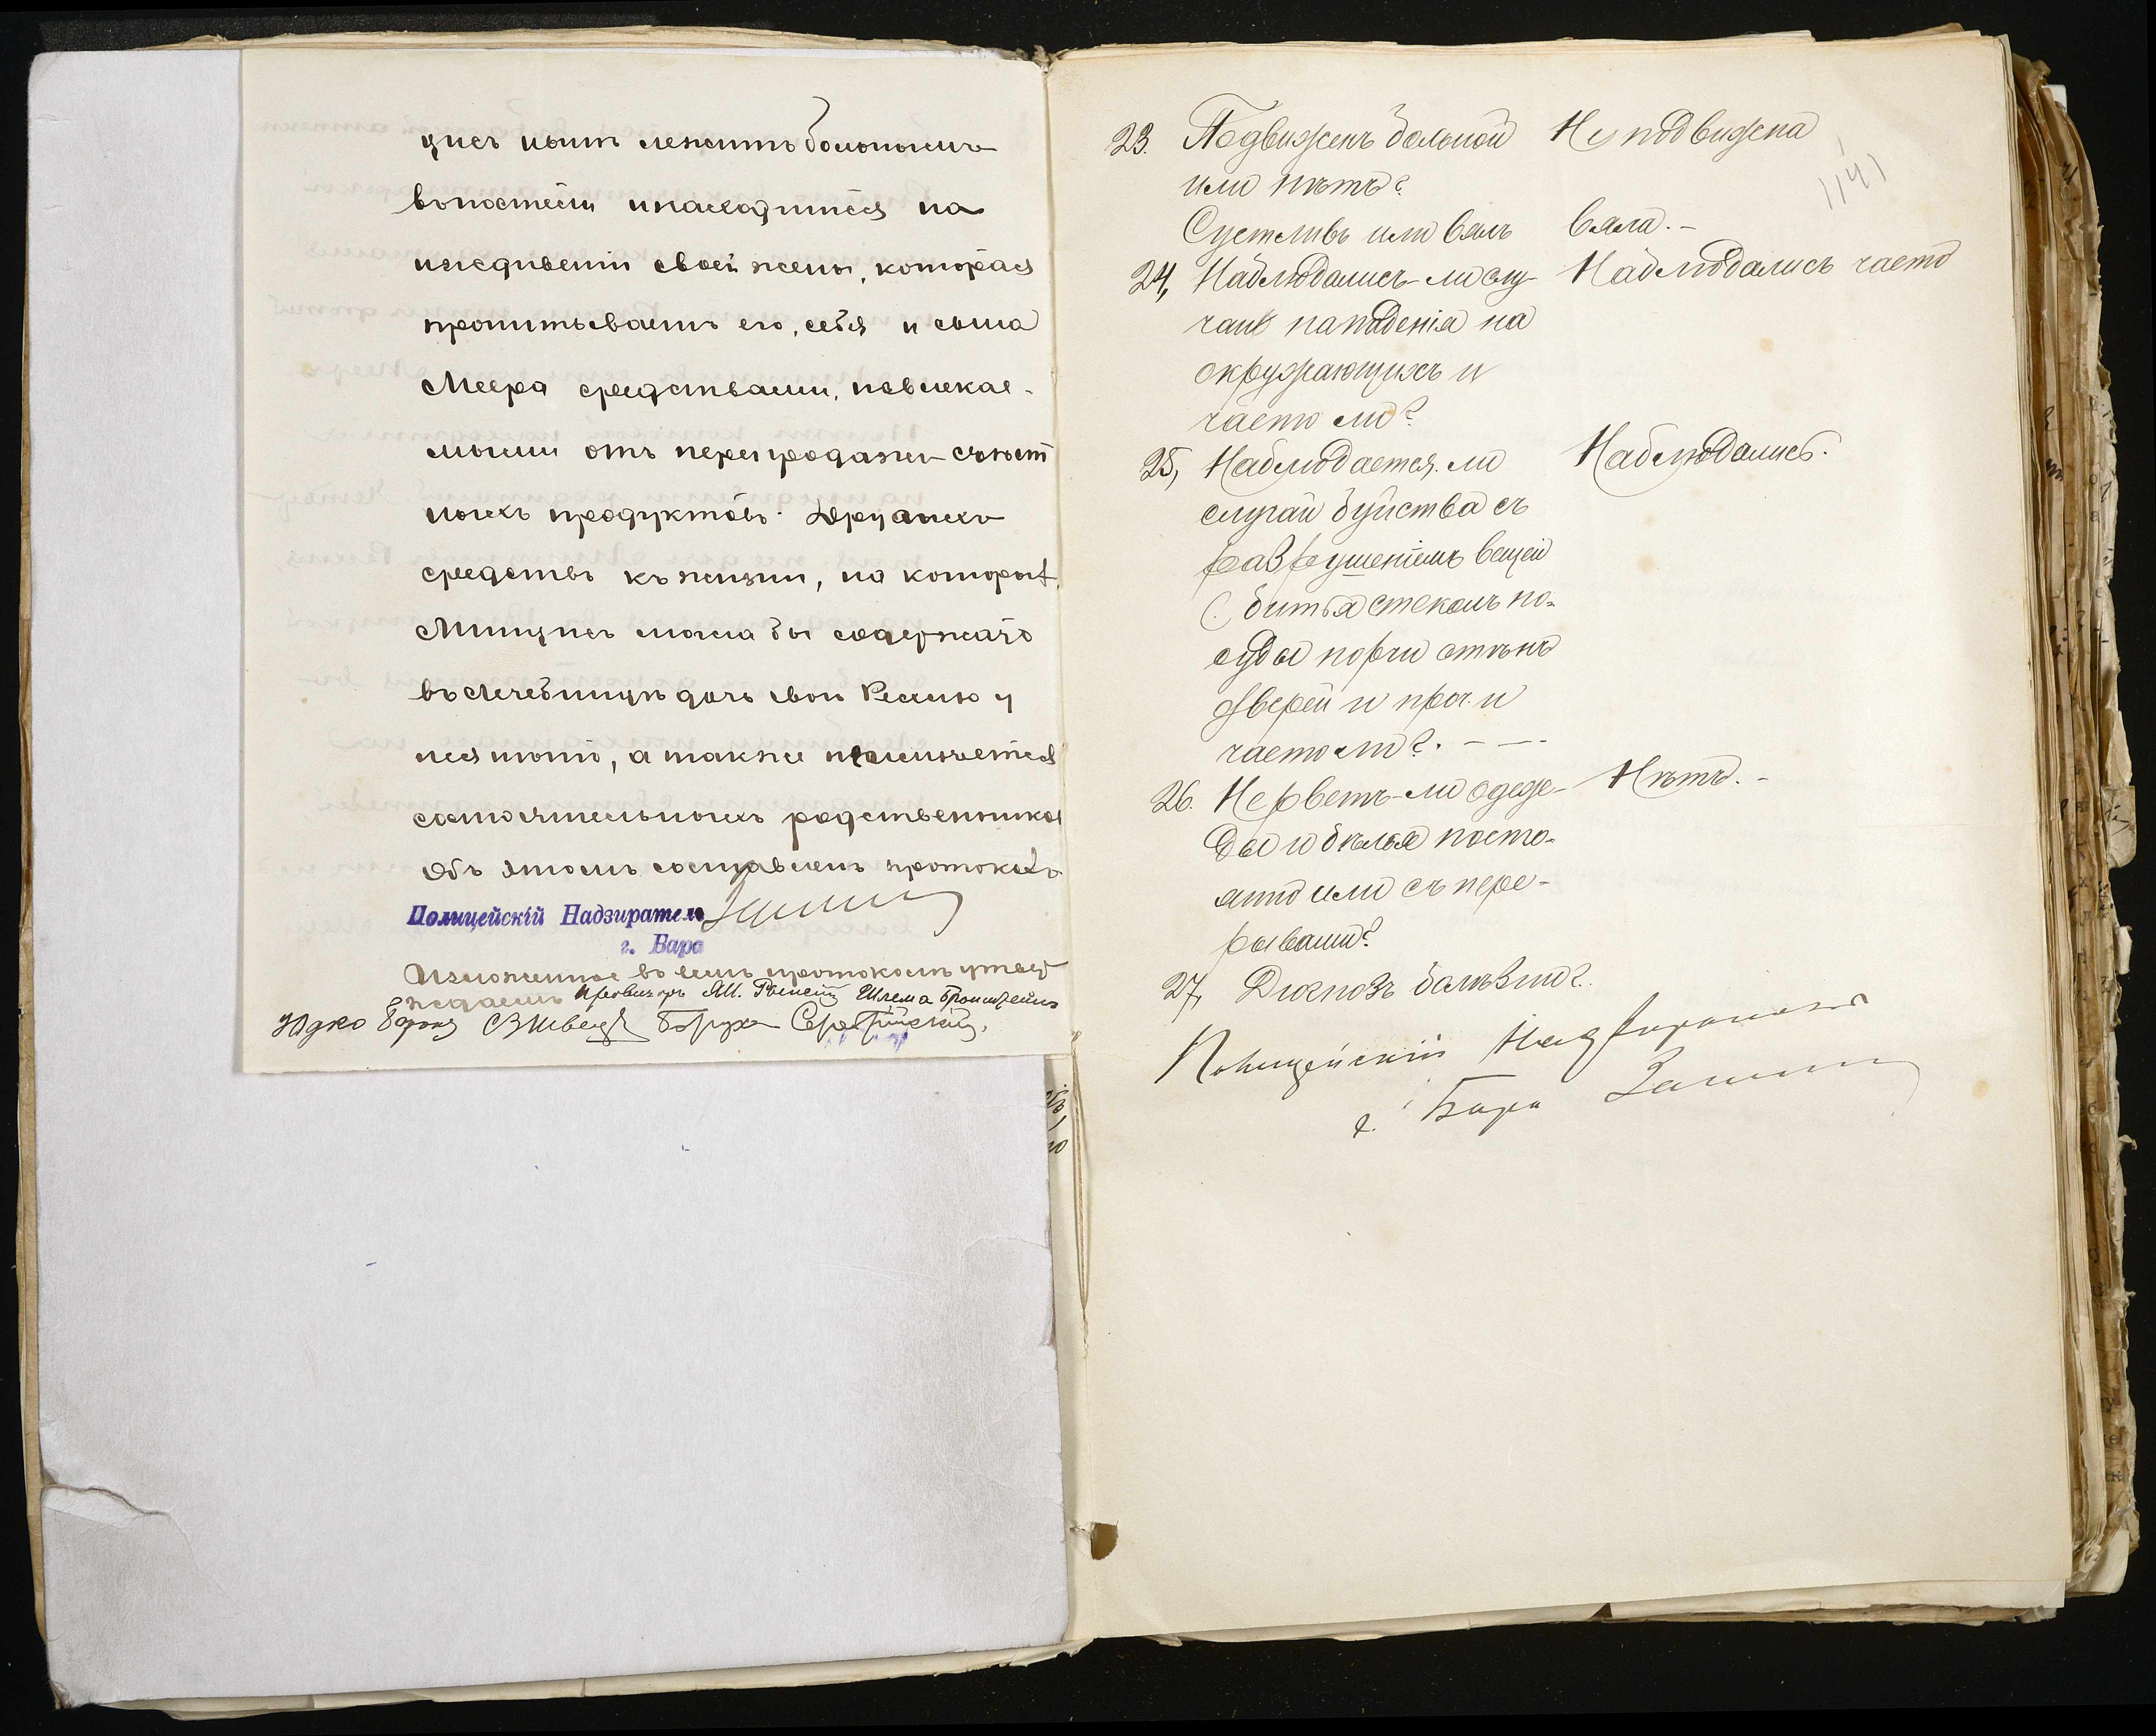 цисъ нынѣ лежитъ больнымъ
въ постели и находится на
иждивеніи своей жены, которая
пропитываетъ его, себя и сына
Меера средствами, извлекае-
мыми отъ перепродажи съѣст
ныхъ продуктовъ. Другихъ
средствъ къ жизни, на которыя
Минцисъ могла бы содержать
въ лечебницѣ дочь свою у
нея нѣтъ, а также не имѣется
состоятельныхъ родственниковъ
Объ этомъ составленъ протоколъ
Полицейскій Надзиратель
г. Бара
Изложенное въ семъ протоколѣ утвер
ждаемъ Провизоръ Шлема Бронштейнъ
Юдко Швецъ Борухъ
23. Подвиженъ больной
или нѣтъ?
Суетливъ или вялъ
Не подвижна
вяла.-
1141
24, Наблюдались-ли слу-
чаи нападенія на
окружающихъ и
часто ли?
Наблюдались часто
25, Наблюдается-ли
случаи буйства съ
разрушеніемъ вещей
(битья стеколъ по-
суды порчи стѣнъ
дверей и проч. и
часто ли?. - — -
Наблюдались.
26. Не рветъ-ли одеж-
ды и бѣлья посто-
янно или съ пере-
рывами?
Нѣтъ.-
27, Діогнозъ болѣзни?.
Полицейскій Надзиратель
г. Бара